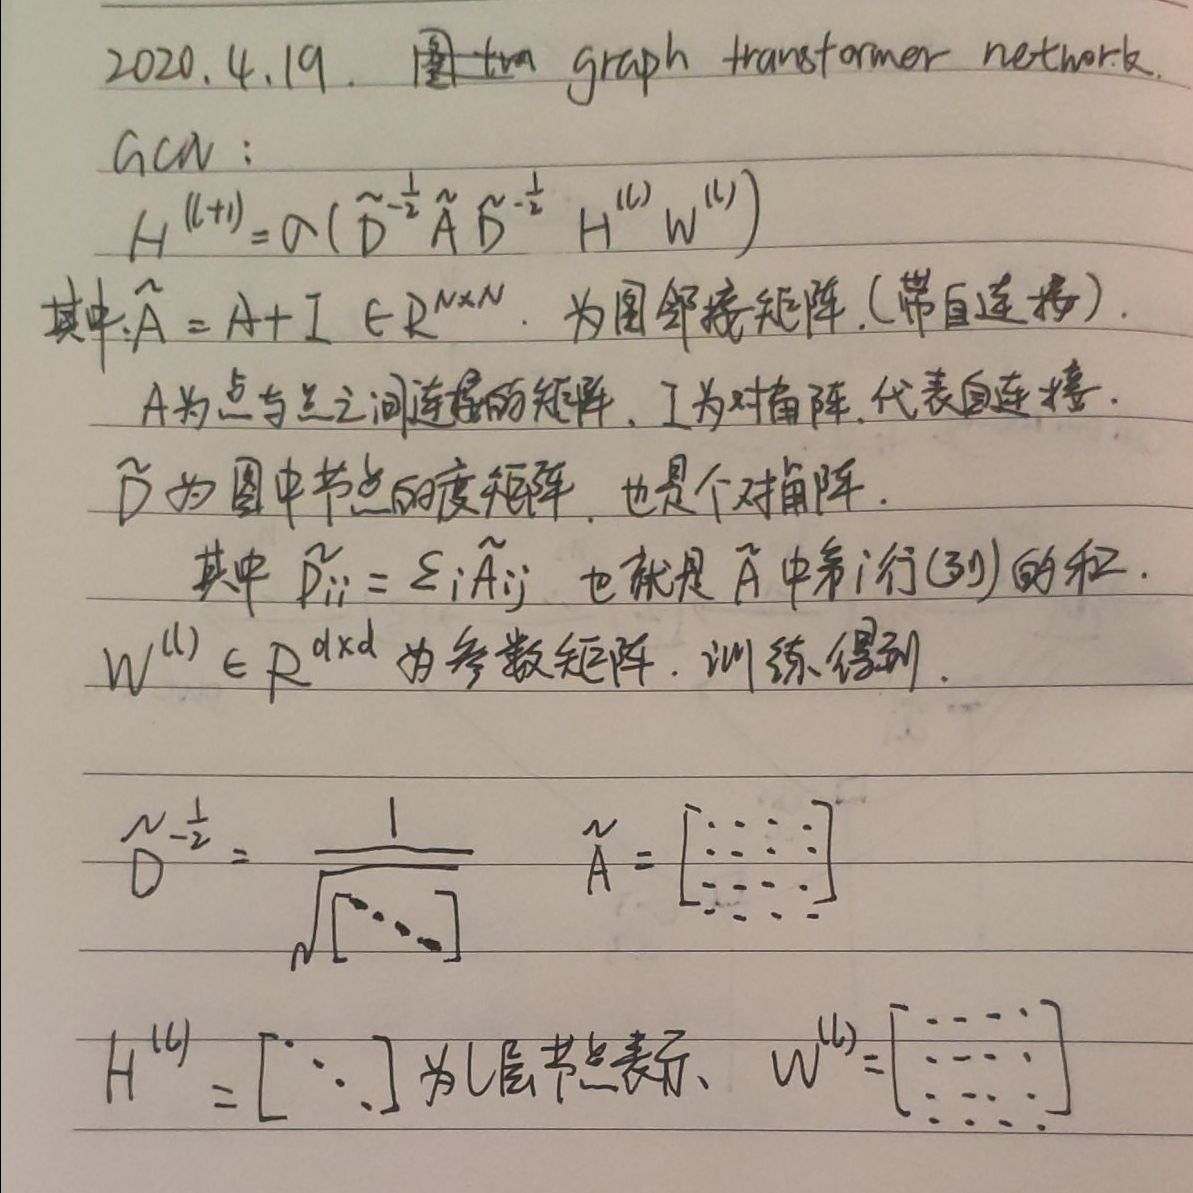 2020.4.19. graph transformer network.
GCN:
H^(l+1) = σ(D̃^-1/2 Ã D̃^-1/2 H^(l) W^(l))
其中:Ã = A+I ∈ R^N×N. 为图邻接矩阵.(带自连接).
A为点与点之间连接的矩阵、I为对角阵.代表自连接.
D̃ 为图中节点的度矩阵、也是个对角阵.
其中 D̃ii = Σi Ãij 也就是 Ã 中第i行(列)的和.
W^(l) ∈ R^d×d 为参数矩阵. 训练得到.
D̃^-1/2 = 1/√[⋱] Ã = [ ]
H^(l) = [⋱] 为l层节点表示、 W^(l) = [ ]